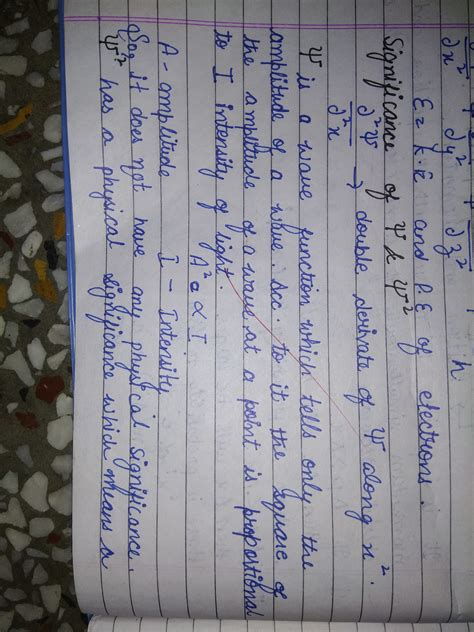 ∂x² ∂y² ∂z² h
E = k.E and P.E of electrons.
Significance of ψ & ψ²
∂²ψ/∂²x → double derivate of ψ along x².
ψ is a wave function which tells only the
amplitude of a wave. Acc to it the square of
the amplitude of a wave at a point is proportional
to I intensity of light.
A² ∝ I
A - amplitude I - Intensity
So, it does not have any physical significance.
ψ² has a physical significance which means a